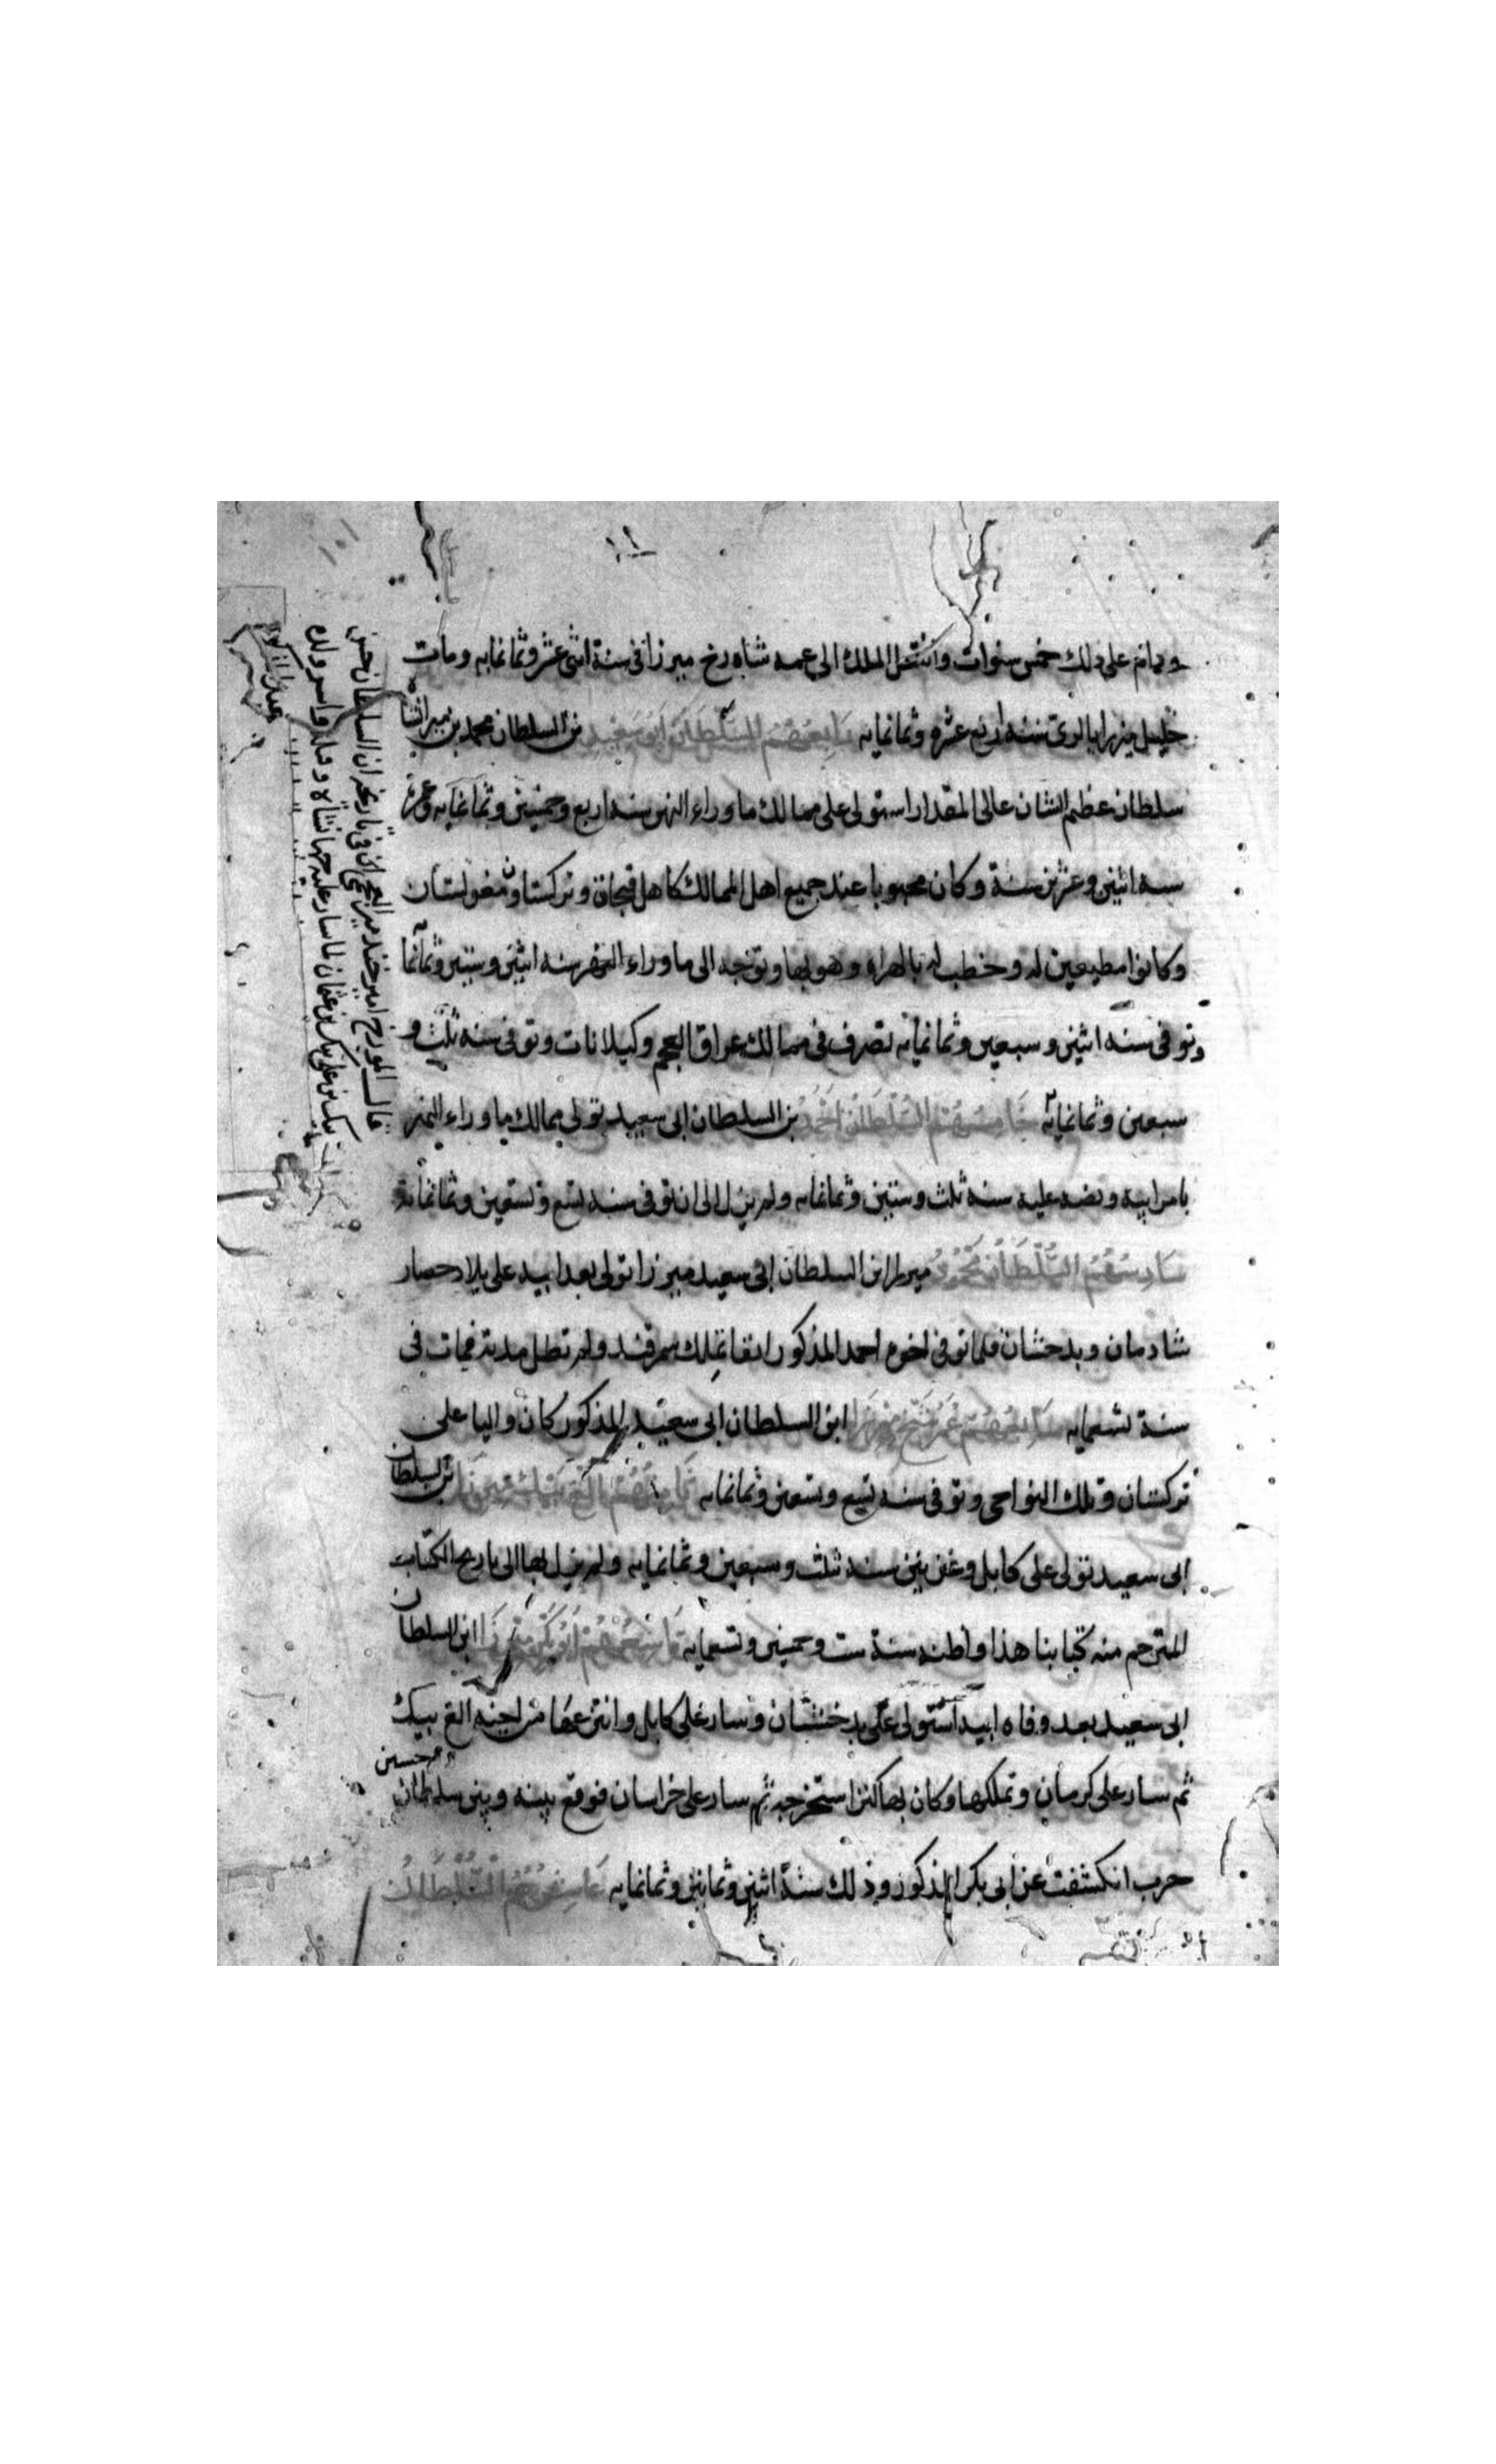 ودام على ذلك خمس سنوات وانتقل الملك الى عمه شاه رخ ميرزا فى سنة اثنى عشر وثمانمايه ومات
خليل ميرزا بالرى سنه اربع عشره وثمانمايه رابعهم السلطان ابو سعيد بن السلطان محمد بن ميرانشاه
سلطان عظيم الشان عالى المقدار استولى على ممالك ما وراء النهر سنه اربع وخمسين وثمانمايه وعمره
سنه اثنين وعشرين سنة وكان محبوبا عند جميع اهل الممالك كاهل قبجاق وتركستان ومغولستان
وكانوا مطيعين له وخطب له بالهراه وهو بها وتوجه الى ما وراء النهر سنه اثنين وستين وثمانمايه
وتوفى سنه اثنين وسبعين وثمانمايه تصرف فى ممالك عراق العجم وكيلانات وتوفى سنه ثلث و
سبعين وثمانمايه خامسهم السلطان احمد بن السلطان ابى سعيد تولى ممالك ما وراء النهر
بامر ابيه ونصه عليه سنه ثلث وستين وثمانمايه ولم يزل الى ان توفى سنه تسع وتسعين وثمانمايه
سادسهم السلطان محمود ميرزا بن السلطان ابى سعيد ميرزا تولى بعد ابيه على بلاد حصار
شادمان وبدخشان فلما توفى اخوه احمد المذكور انفا تملك سمرقند ولم تطل مدته فمات فى
سنة تسعمايه سابعهم عمر شيخ ميرزا ابن السلطان ابى سعيد المذكور كان واليا على
تركستان وتلك النواحى وتوفى سنه تسع وتسعين وثمانمايه ثامنهم الغ بيك ميرزا بن السلطان
ابى سعيد تولى على كابل وغزنين سنه ثلث وسبعين وثمانمايه ولم يزل بها الى تاريخ الكتاب
المترجم منه كتابنا هذا واظنه سنة ست وخمسين وتسعمايه تاسعهم ابو بكر ميرزا ابن السلطان
ابى سعيد بعد وفاه ابيه استولى على بدخشان وسار على كابل وانتزعها من اخيه الغ بيك
ثم سار على كرمان وتملكها وكان بها كنز استخرجه ثم سار على خراسان فوقع بينه وبين سلطان حسين
حرب انكشفت عن ابى بكر المذكور وذلك سنة اثنين وثمانين وثمانمايه عاشرهم السلطان
قال المورخ امير خند مير العجمى فى تاريخه ان السلطان حسن
بيك بن على بيك بن عثمان لما سار عليه جهانشاه وقتله واسر ولده